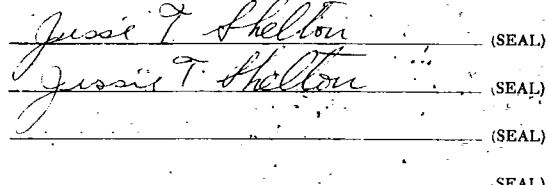 Jessie T Shelton (SEAL)
Jessie T. Shelton (SEAL)
(SEAL)
SEAL)